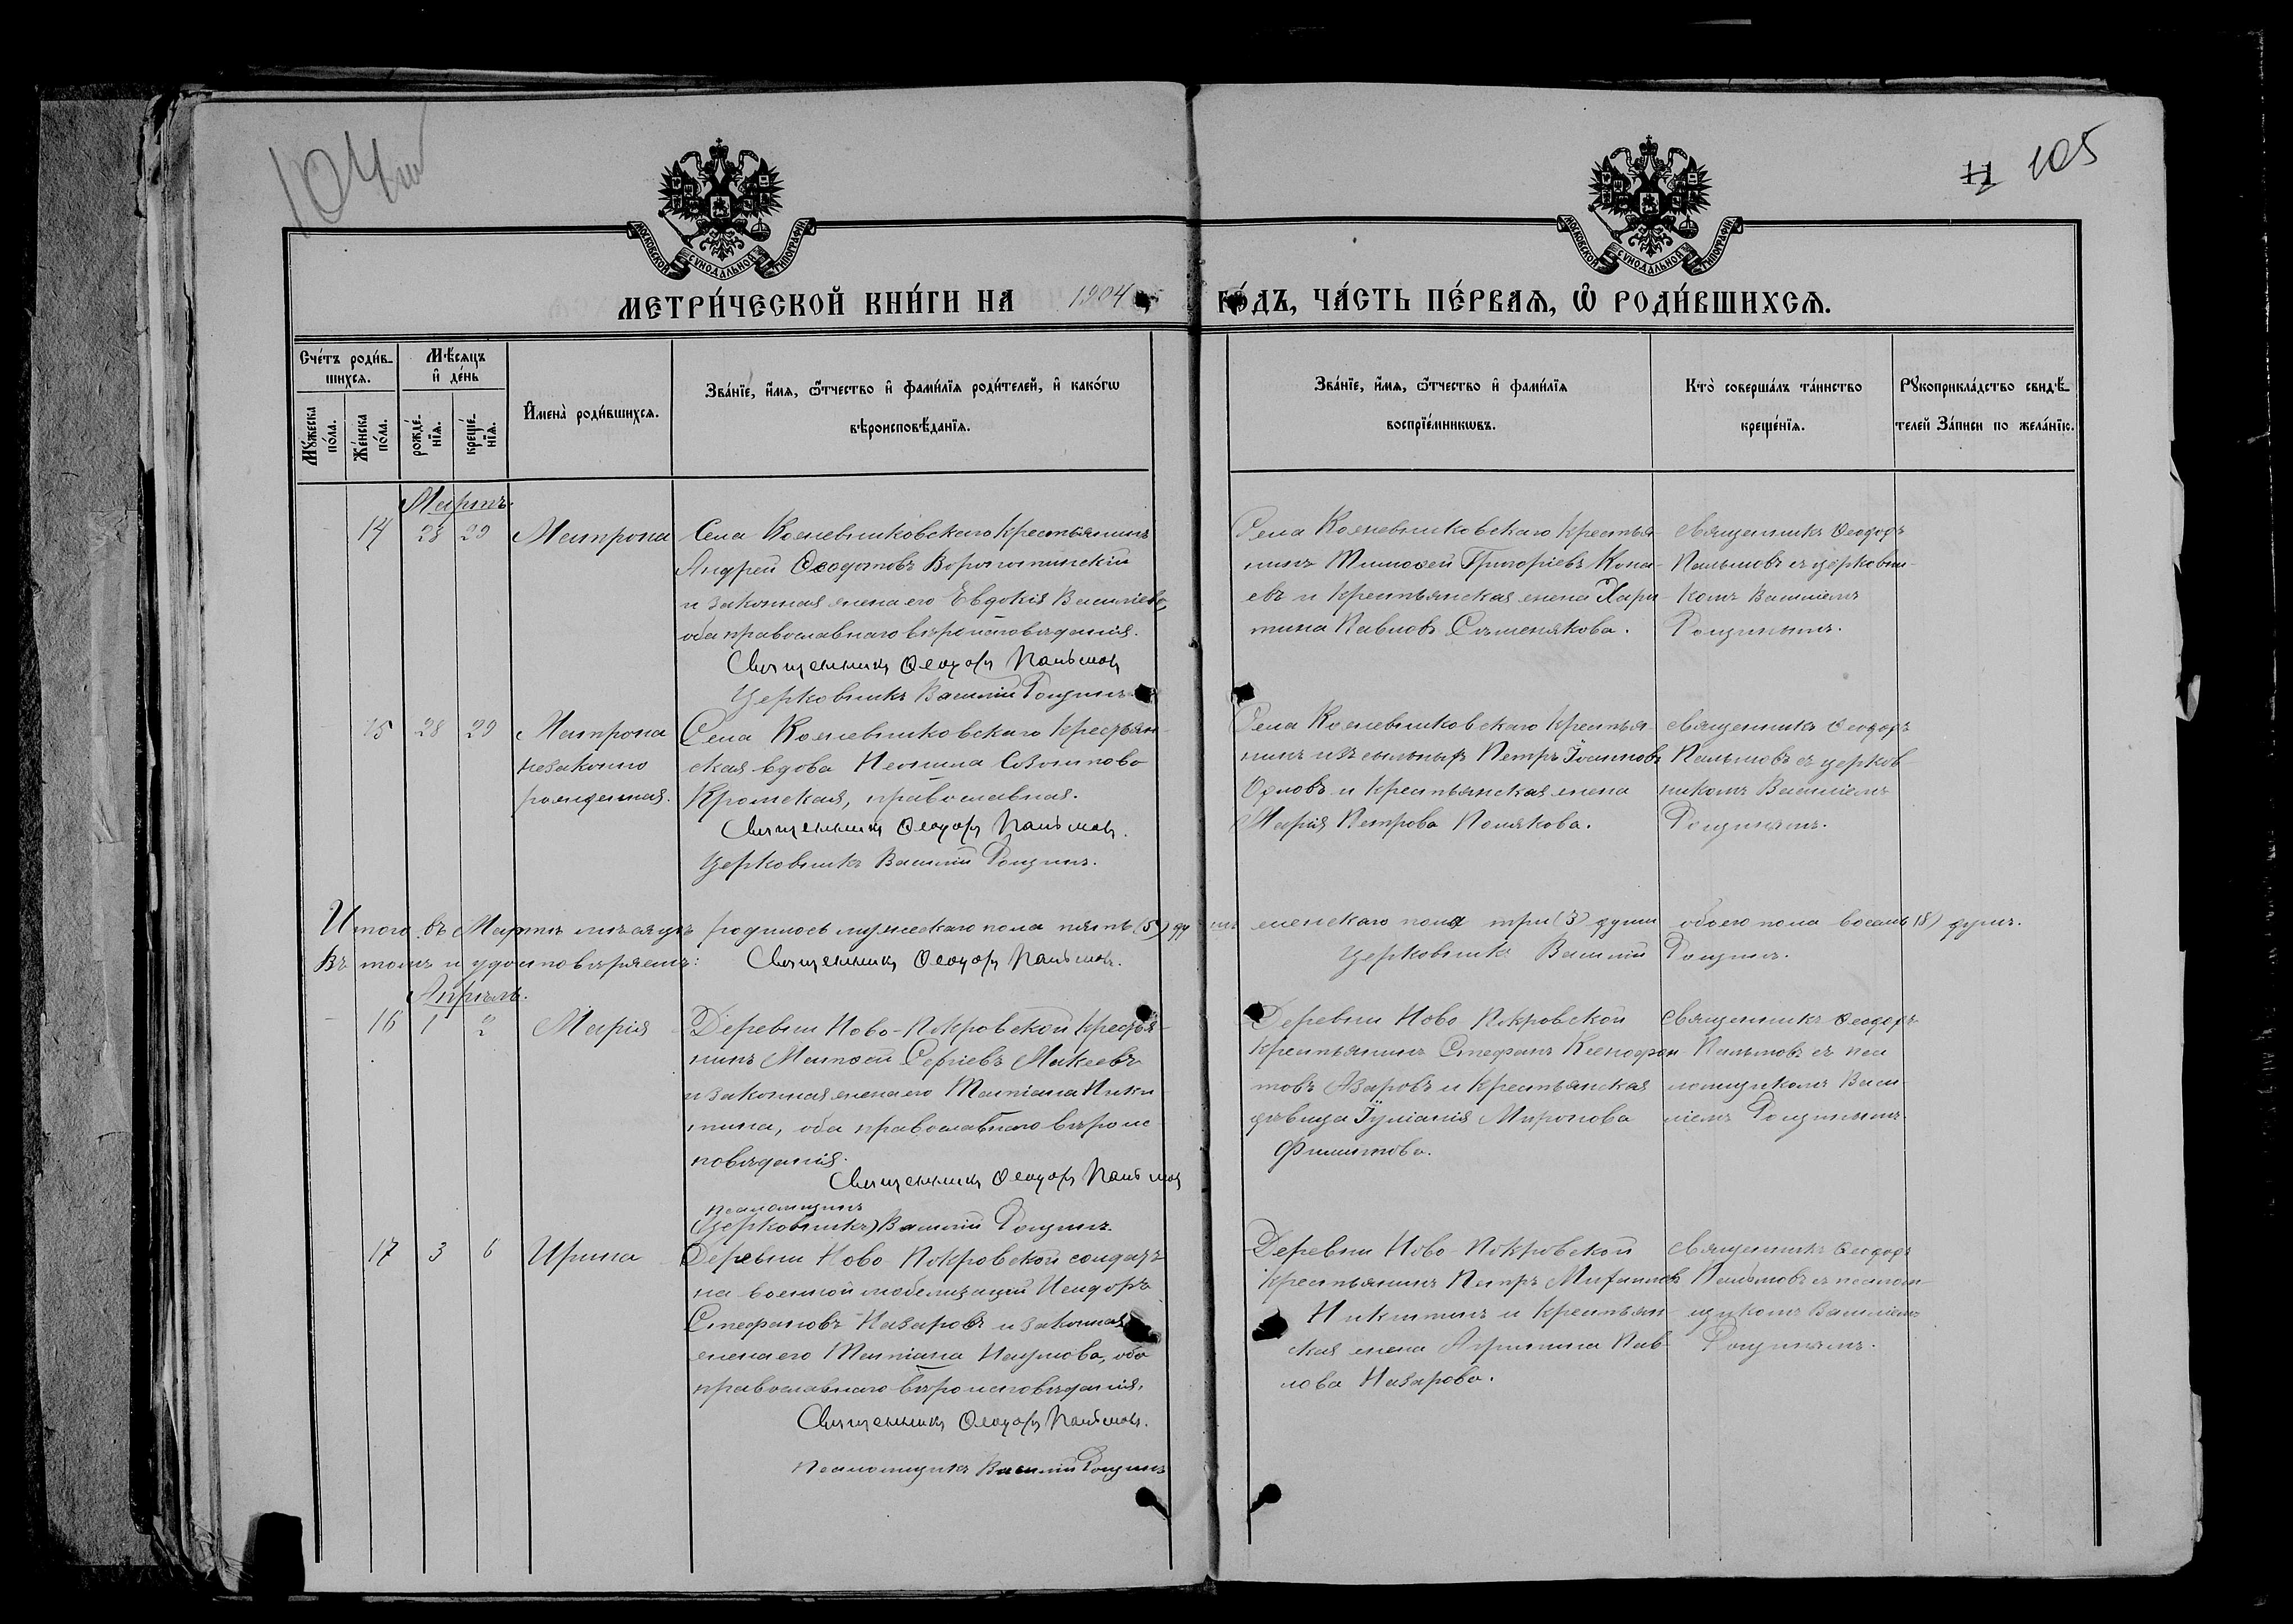 104 об
11 105
МОСКОВСКОЙ СѴНОДАЛЬНОЙ ТИПОГРАФІИ
МОСКОВСКОЙ СѴНОДАЛЬНОЙ ТИПОГРАФІИ
МЕТРИ́ЧЕСКОЙ КНИ́ГИ НА 1904 ГО́ДЪ, ЧА́СТЬ ПЕ́РВАѦ, Ѡ҆ РОДИ́ВШИХСѦ.
Сче́тъ роди́в-
шихсѧ.
Мѣ́сѧцъ
и҆ де́нь
Мꙋ́жеска
по́ла.
Же́нска
по́ла.
рожде́-
нїѧ.
креще́-
нїѧ.
И҆мена̀ роди́вшихсѧ.
Зва́нїе, и҆́мѧ, ѻ҆́тчество и҆ фамі́лїѧ роди́телей, и҆ како́гѡ
вѣроисповѣ́данїѧ.
Зва́нїе, и҆́мѧ, ѻ҆́тчество и҆ фамі́лїѧ
воспрїе́мникѡвъ.
Кто̀ соверша́лъ та́инство
креще́нїѧ.
Рꙋкоприкла́дство свидѣ́-
телей За́писи по жела́нїю.
Мартъ.
14 28 29 Матрона
Села Кожевниковскаго крестьянинъ
Андрей Ѳеодотовъ Воропотинскій
и законная жена его Евдокія Василіева,
оба православнаго вѣроисповѣданія.
Священникъ Ѳеодоръ Пальмовъ
Церковникъ Василій Рощинъ
Села Кожевниковскаго крестья
нинъ Тимоѳей Григоріевъ Копа-
евъ и крестьянская жена Хари
тина Павлова Съменякова.
Священникъ Ѳеодоръ
Пальмовъ съ церковни-
комъ Василіемъ
Рощинымъ.
15 28 29 Матрона
незаконно
рожденная.
Села Кожевниковскаго крестьян-
ская вдова Неонила Созонтова
Кромская, православная.
Священникъ Ѳеодоръ Пальмовъ.
Церковникъ Василій Рощинъ.
Села Кожевниковскаго крестья
нинъ изъ ссыльныхъ Петръ Іоанновъ
Орловъ и крестьянская жена
Марія Петрова Полякова.
Священникъ Ѳеодоръ
Пальмовъ съ церков
никомъ Василіемъ
Рощинымъ.
Итого въ Мартѣ мѣсяцѣ родилось мужескаго пола пять (5) душъ женскаго пола три (3) души обоего пола восемь (8) душъ.
Въ томъ и удостовѣряемъ: Священникъ Ѳеодоръ Пальмовъ. Церковникъ Василій Рощинъ.
Апрѣль.
16 1 2 Марія
Деревни Ново-Покровской крестья-
нинъ Матѳей Сергіевъ Макеевъ
и законная жена его Татіана Ники
тина, оба православнаго вѣроис
повѣданія.
Священникъ Ѳеодоръ Пальмовъ
псаломщикъ
(Церковникъ) Василій Рощинъ.
Деревни Ново Покровской
крестьянинъ Стефанъ Ксенофон
товъ Азаровъ и крестьянская
дѣвица Іуліанія Миронова
Филиппова.
Священникъ Ѳеодоръ
Пальмовъ съ пса
ломщикомъ Васи-
ліемъ Рощинымъ.
17 3 6 Ирина
Деревни Ново Покровской солдатъ
на военной мобелизаціи Исидоръ
Стефановъ Назаровъ и законная
жена его Татіана Наумова, оба
православнаго вѣроисповѣданія.
Священникъ Ѳеодоръ Пальмовъ.
Псаломщикъ Василій Рощинъ
Деревни Ново-Покровской
крестьянинъ Петръ
Никитинъ и крестьян-
ская жена Агрипина Пав-
лова Назарова.
Священникъ Ѳеодоръ
Пальмовъ съ псалом-
щикомъ Василіемъ
Рощинымъ.